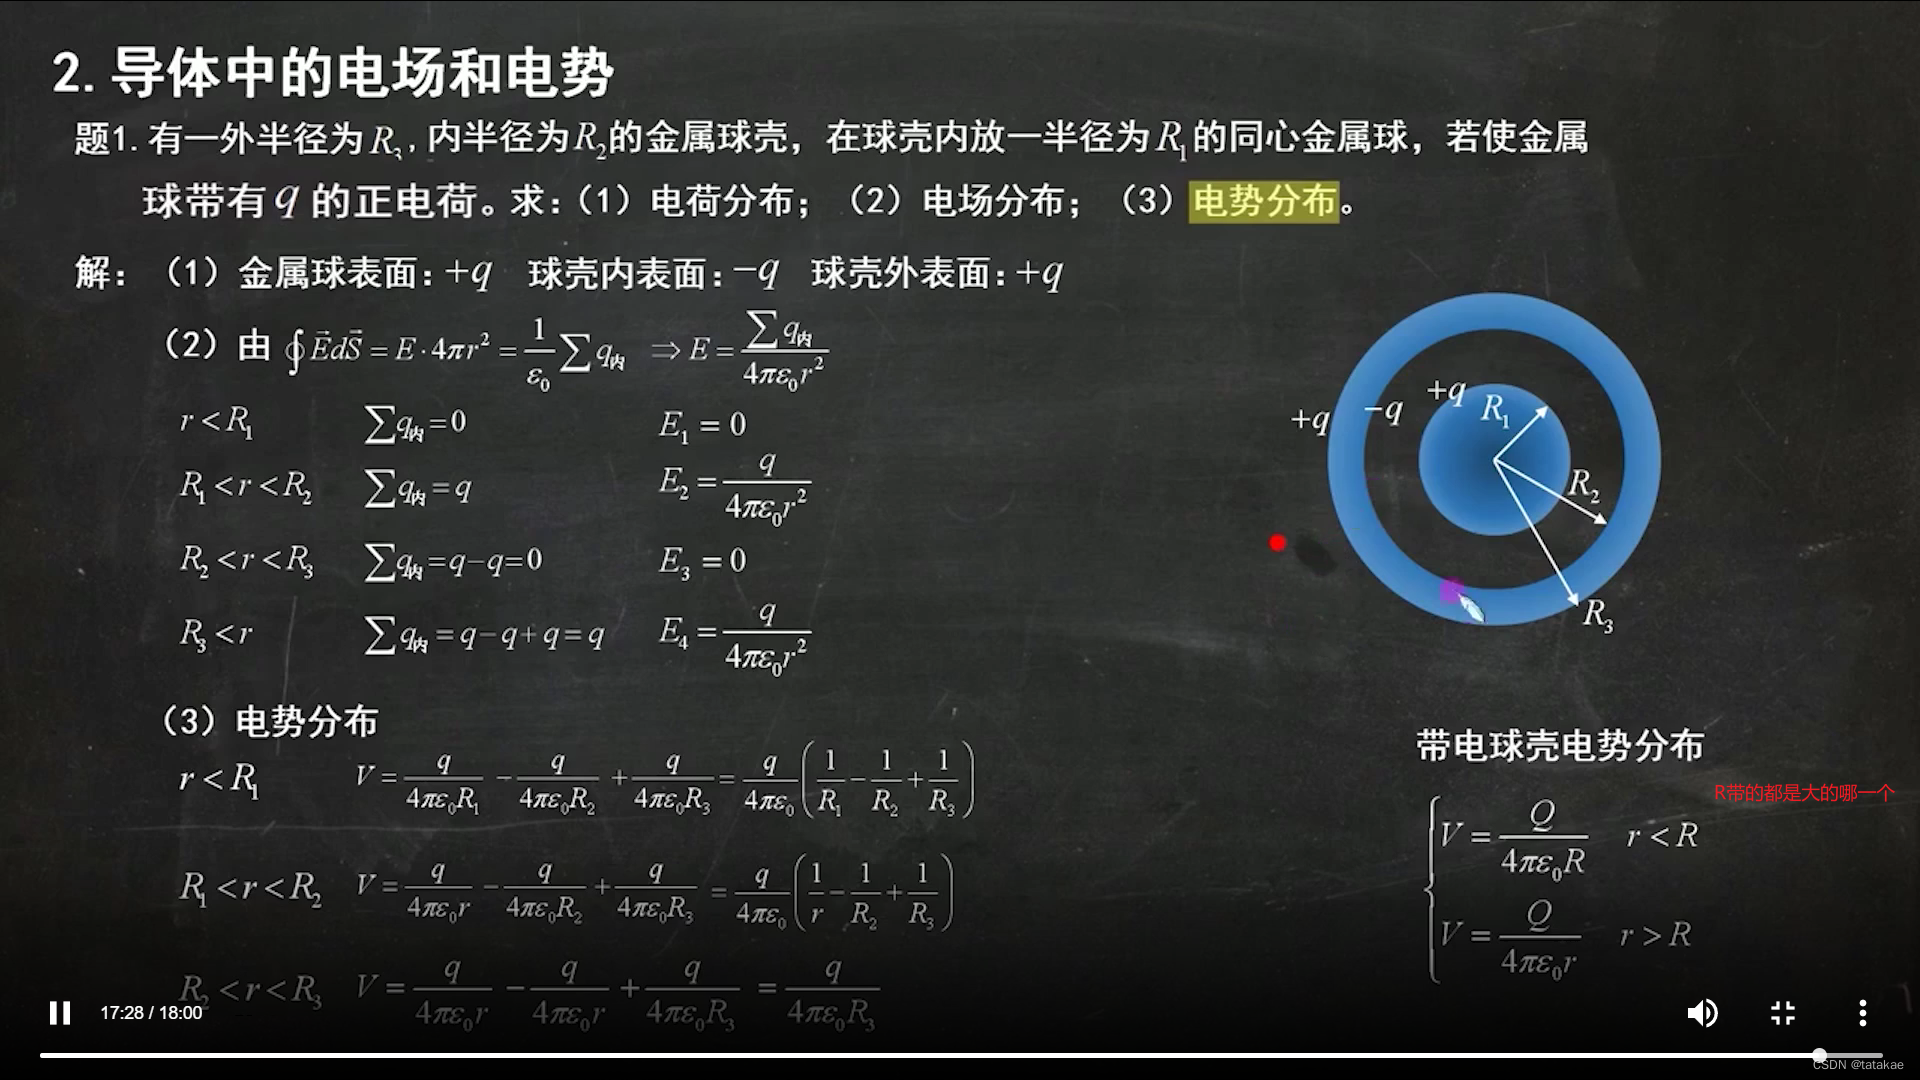 2.导体中的电场和电势
题1.有一外半径为R₃,内半径为R₂的金属球壳，在球壳内放一半径为R₁的同心金属球，若使金属
球带有q的正电荷。求:（1）电荷分布；（2）电场分布；（3）电势分布。
解：（1）金属球表面:+q 球壳内表面:−q 球壳外表面:+q
（2）由 ∮E⃗dS⃗ = E·4πr² = 1/ε₀ ∑q内 ⇒ E = ∑q内/4πε₀r²
r < R₁ ∑q内=0 E₁ = 0
R₁ < r < R₂ ∑q内=q E₂ = q/4πε₀r²
R₂ < r < R₃ ∑q内=q−q=0 E₃ = 0
R₃ < r ∑q内=q−q+q=q E₄ = q/4πε₀r²
+q −q +q R₁
R₂
R₃
（3）电势分布
r < R₁ V = q/4πε₀R₁ − q/4πε₀R₂ + q/4πε₀R₃ = q/4πε₀(1/R₁ − 1/R₂ + 1/R₃)
R₁ < r < R₂ V = q/4πε₀r − q/4πε₀R₂ + q/4πε₀R₃ = q/4πε₀(1/r − 1/R₂ + 1/R₃)
R₂ < r < R₃ V = q/4πε₀r − q/4πε₀r + q/4πε₀R₃ = q/4πε₀R₃
带电球壳电势分布
R带的都是大的哪一个
V = Q/4πε₀R r < R
V = Q/4πε₀r r > R
17:28 / 18:00
CSDN @tatakae